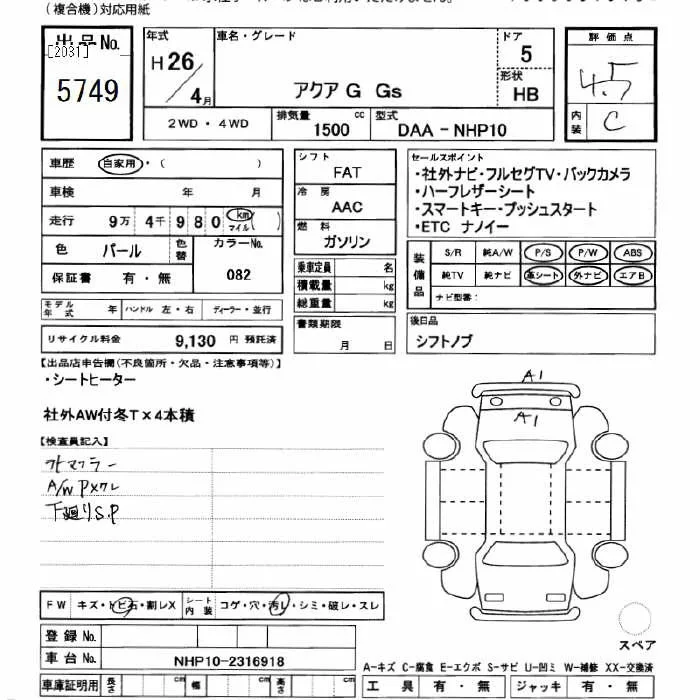 (複合機)対応用紙
出品No. [2031] 5749
年式 H26/4月
車名・グレード アクア G Gs
ドア 5
形状 HB
評価点 4.5
内装 C
2WD・4WD
排気量 1500 cc
型式 DAA-NHP10
車歴 自家用・( )
車検 年 月
走行 9万 4千 980 km マイル( )
色 パール 色替 カラーNo. 082
保証書 有・無
シフト FAT
冷房 AAC
燃料 ガソリン
乗車定員 名
積載量 kg
総重量 kg
書類期限
月 日
セールスポイント
・社外ナビ・フルセグTV・バックカメラ
・ハーフレザーシート
・スマートキー・プッシュスタート
・ETC ナノイー
装備品 S/R 純A/W P/S P/W ABS
純TV 純ナビ 革シート 外ナビ エアB
ナビ型番:
後日品
シフトノブ
モデル年式 年 ハンドル 左・右 ディーラー・並行
リサイクル料金 9,130 円 預託済
【出品店申告欄(不良箇所・欠品・注意事項等)】
・シートヒーター
社外AW付冬T×4本積
【検査員記入】
外マフラー
A/W P×クレ
下廻りS.P
A1
A1
FW キズ・トビ石・割レX シート内装 コゲ・穴・汚レ・シミ・破レ・スレ
登録No.
車台No. NHP10-2316918
車庫証明用 長さ cm 幅 cm 高さ cm
スペア
A-キズ C-腐食 E-エクボ S-サビ U-凹ミ W-補修 XX-交換済
工具 有・無 ジャッキ 有・無